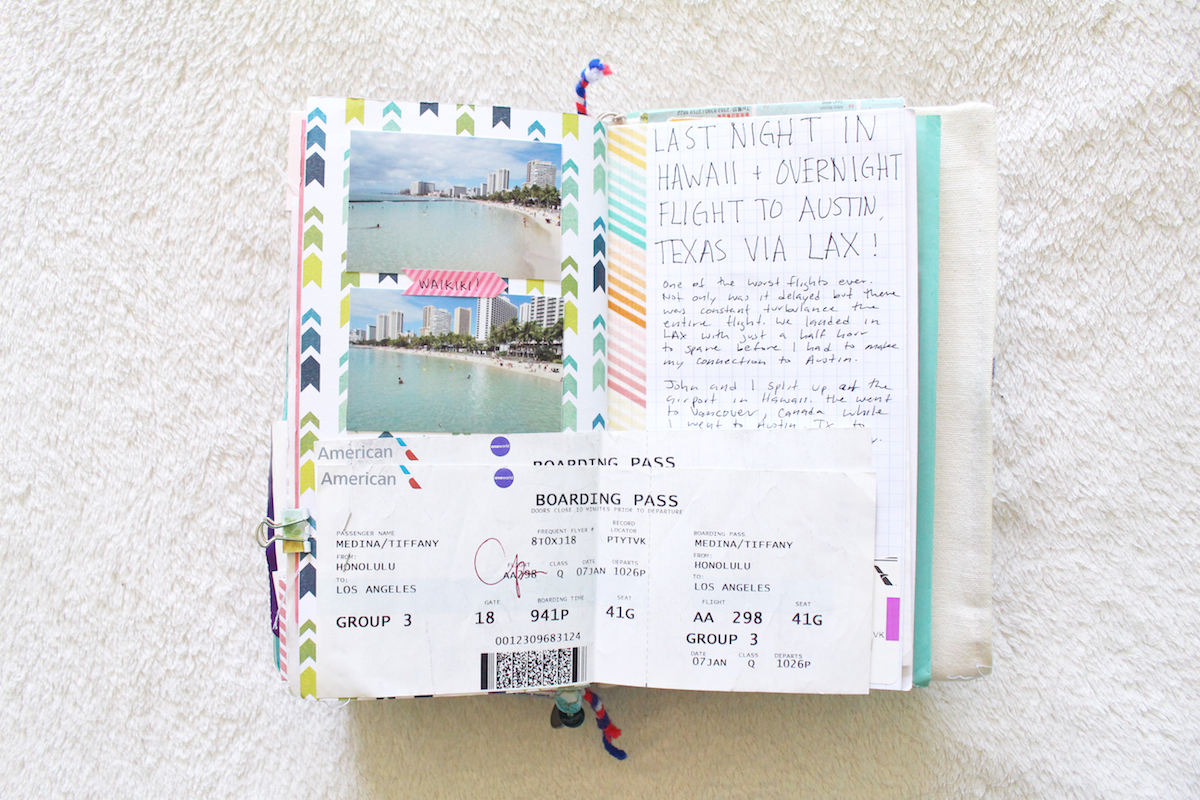 WAIKIKI!
LAST NIGHT IN
HAWAII + OVERNIGHT
FLIGHT TO AUSTIN,
TEXAS VIA LAX!
One of the worst flights ever.
Not only was it delayed but there
was constant turbulance the
entire flight. We landed in
LAX with just a half hour
to spare before I had to make
my connection to Austin.
John and I split up at the
airport in Hawaii. He went
to Vancouver, Canada while
I went to Austin, TX to
American
oneworld
BOARDING PASS
American
oneworld
BOARDING PASS
DOORS CLOSE 10 MINUTES PRIOR TO DEPARTURE
PASSENGER NAME
MEDINA/TIFFANY
FROM:
HONOLULU
TO:
LOS ANGELES
GROUP 3
FREQUENT FLYER #
8T0XJ18
RECORD
LOCATOR
PTYTVK
FLIGHT CLASS DATE DEPARTS
AA298 Q 07JAN 1026P
GATE BOARDING TIME SEAT
18 941P 41G
0012309683124
BOARDING PASS
MEDINA/TIFFANY
FROM:
HONOLULU
TO:
LOS ANGELES
FLIGHT SEAT
AA 298 41G
GROUP 3
DATE CLASS DEPARTS
07JAN Q 1026P
VK